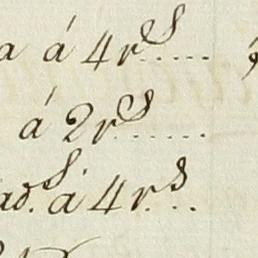 a á 4 r^s.....
á 2 r^s......
ad^s. á 4 r^s...